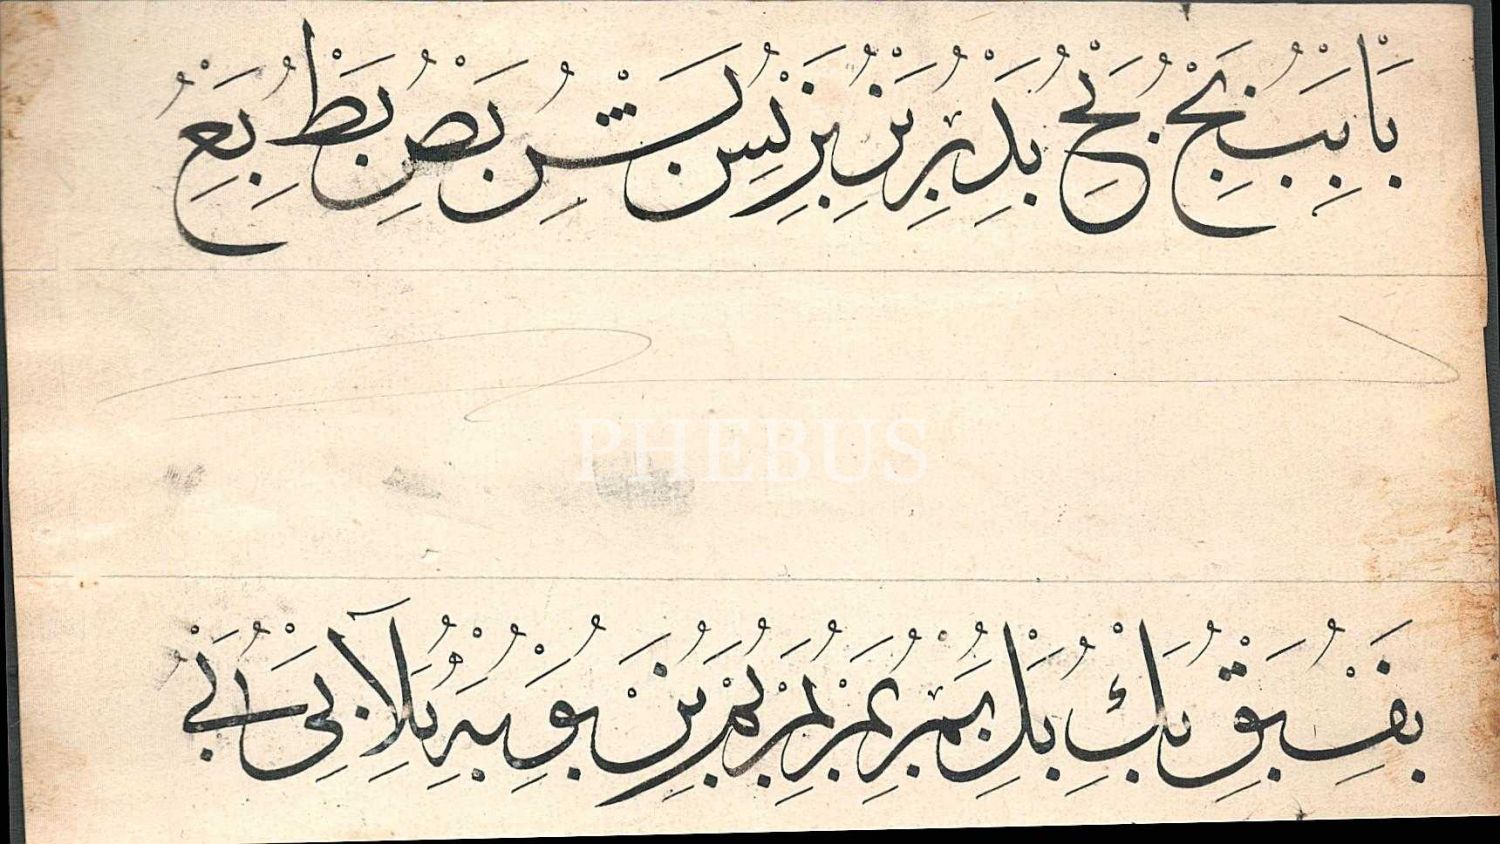 با بب بج بح بد بر بز بس بس بش بص بط بع
PHEBUS
بف بق بك بل بم بم بم بم بم بن بو به بلا بى بے